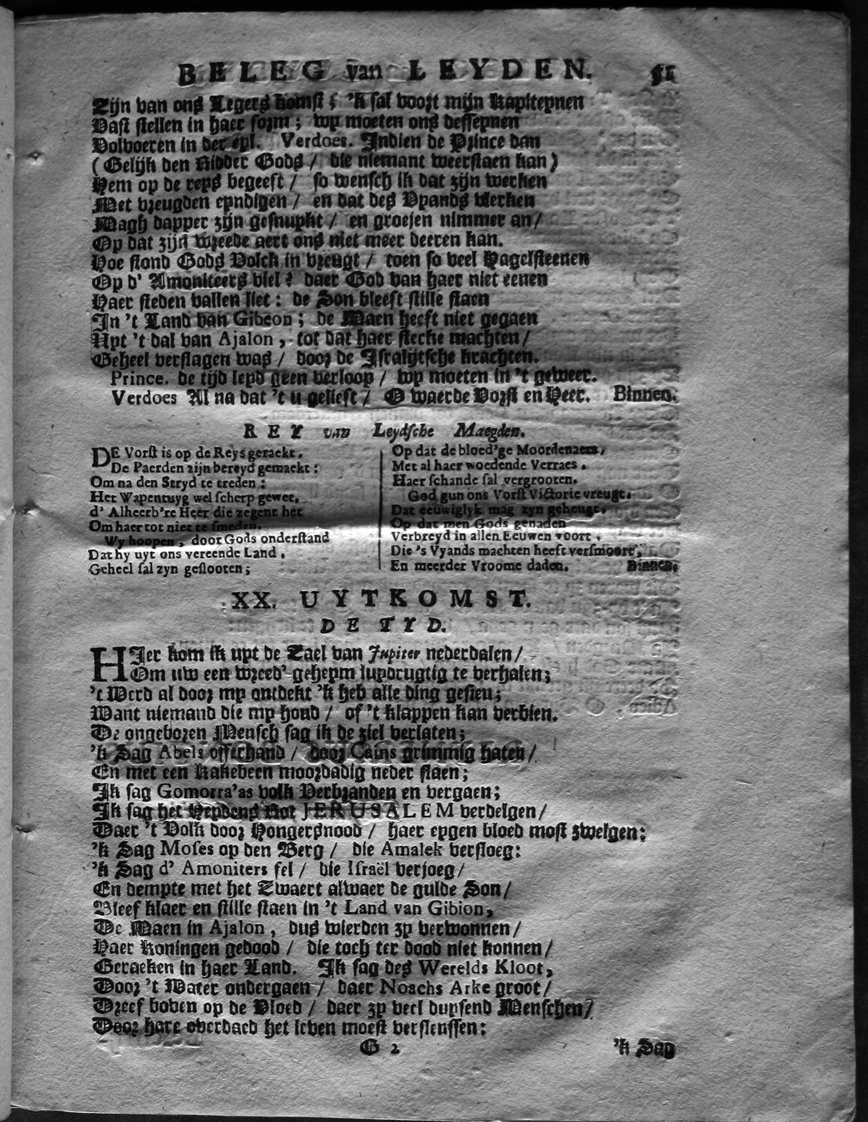 BELEG van LEYDEN. 51
Zijn van ons Legers komst; 'k sal voort mijn Kapiteynen
Vast stellen in haer form; wy moeten ons desseynen
Volvoeren in der eyl. Verdoes. Indien de Prince dan
(Gelijk den Ridder Gods / die niemant weerstaen kan)
Hem op de reys begeeft / so wensch ik dat zijn werken
Met vreugden eyndigen / en dat des Vyands vlerken
Magh dapper zijn gesnuykt / en groejen nimmer an /
Op dat zijn wreede aert ons niet meer deeren kan.
Hoe stond Gods Volck in vreugt / toen so veel Hagelsteenen
Op d' Amoniteers viel? daer God van haer niet eenen
Haer steden vallen liet: de Son bleeft stille staen
In 't Land van Gibeon; de Maen heeft niet gegaen
Uyt 't dal van Ajalon, tot dat haer stercke machten /
Geheel verslagen was / door de Isralijtsche krachten.
Prince. de tijd leyd geen verloop / wy moeten in 't geweer.
Verdoes Al na dat 't u gelieft / O waerde Vorst en Heer. Binnen.
REY van Leydsche Maegden.
DE Vorst is op de Reys geraekt,
De Paerden zijn bereyd gemaekt:
Om na den Stryd te treden:
Het Wapentuyg wel scherp gewet,
d' Alheerb're Heer die zegent het
Om haer tot niet te smeden.
Wy hoopen, door Gods onderstand
Dat hy uyt ons vereende Land,
Geheel sal zyn geslooten;
Op dat de bloed'ge Moordenaers,
Met al haer woedende Verraes,
Haer schande sal vergrooten.
God gun ons Vorst Victorie vreugt,
Dat eeuwiglyk mag zyn geheugt,
Op dat men Gods genaden
Verbreyd in allen Eeuwen voort,
Die 's Vyands machten heeft versmoort,
En meerder Vroome daden. Binnen.
XX. UYTKOMST.
DE TYD.
HIer kom ik uyt de Zael van Jupiter nederdalen /
Om uw een wreed' geheym luydrugtig te verhalen;
't Werd al door my ontdekt 'k heb alle ding gesien;
Want niemand die my houd / of 't klappen kan verbien.
De ongeboren Mensch sag ik de ziel verlaten;
'k Sag Abels offerhand / door Cains grimmig haten /
En met een Kakebeen moordadig neder slaen;
Ik sag Gomorra'as volk Verbranden en vergaen;
Ik sag het Heydens Rot JERUSALEM verdelgen /
Daer 't Volk door Hongersnood / haer eygen bloed most zwelgen;
'k Sag Moses op den Berg / die Amalek versloeg:
'k Sag d' Amoniters fel / die Israël verjoeg /
En dempte met het Zwaert alwaer de gulde Son /
Bleef klaer en stille staen in 't Land van Gibion,
De Maen in Ajalon, dus wierden zy verwonnen /
Haer Koningen gedood / die toch ter dood niet konnen /
Geraeken in haer Land. Ik sag des Werelds Kloot,
Door 't Water ondergaen / daer Noachs Arke groot /
Dreef boven op de Vloed / daer zy veel duysend Menschen /
Door hare overdaed het leven moest verslenssen:
G 2 'k Sag